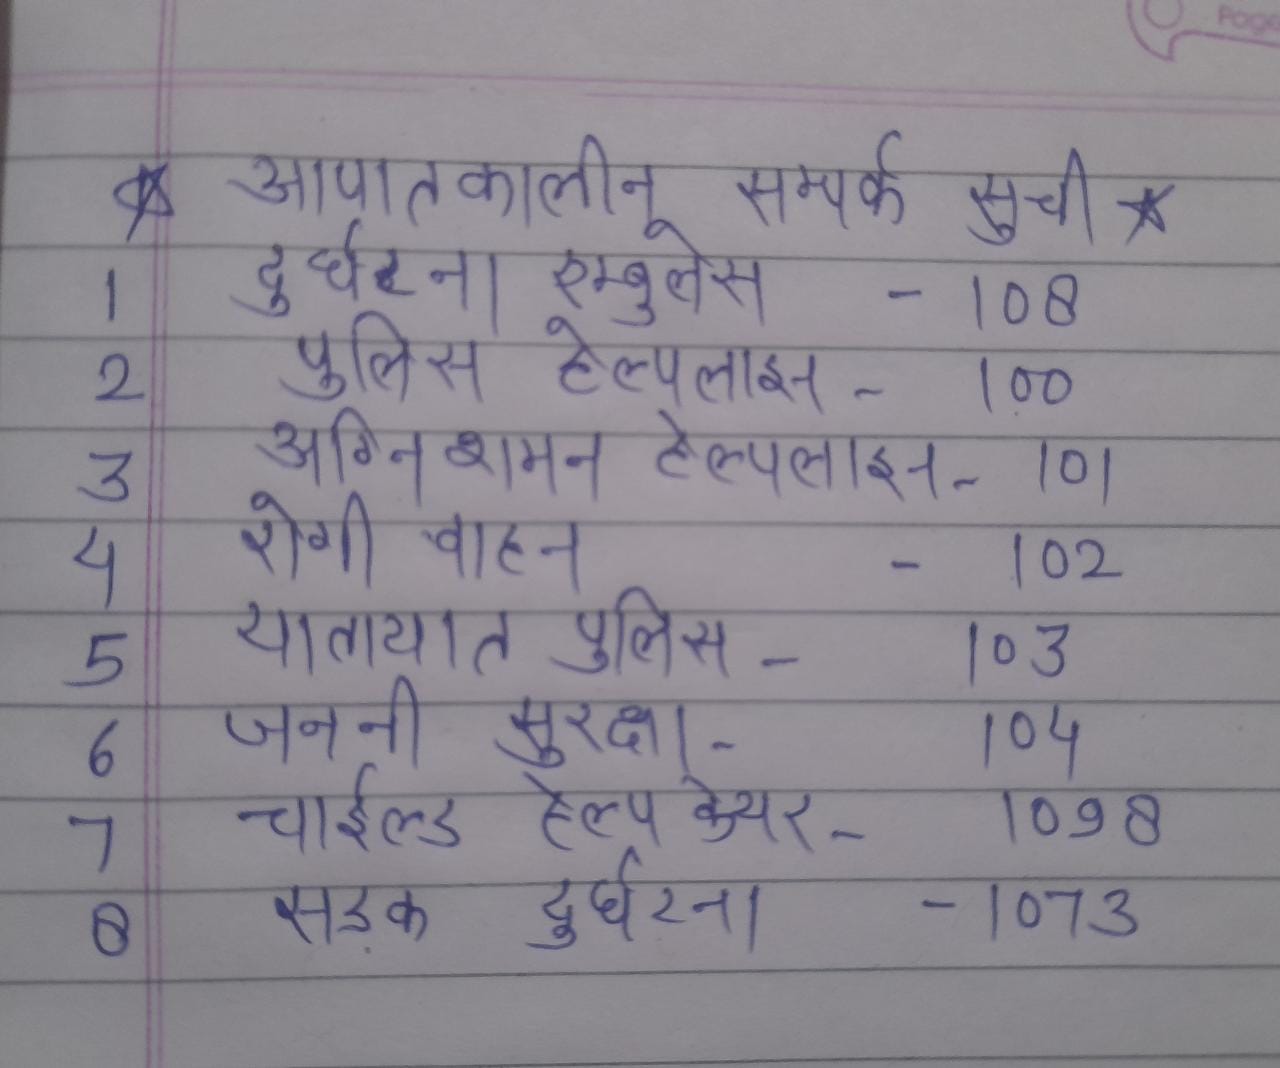 Page
☆ आपातकालीन सम्पर्क सुची ☆
1 दुर्घटना एम्बुलेस - 108
2 पुलिस हेल्पलाइन - 100
3 अग्निशमन हेल्पलाइन - 101
4 रोगी वाहन - 102
5 यातायात पुलिस - 103
6 जननी सुरक्षा - 104
7 चाईल्ड हेल्प केयर - 1098
8 सड़क दुर्घटना - 1073